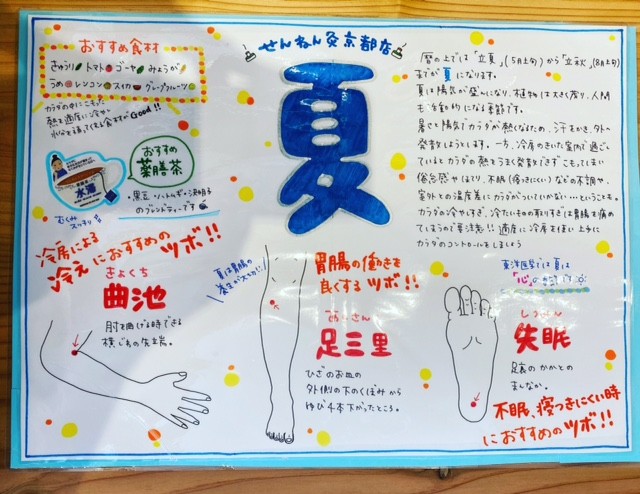 せんねん灸京都店
夏
おすすめ食材
きゅうり トマト ゴーヤ みょうが
うめ レンコン スイカ グレープフルーツ
カラダの中にこもった
熱を適度に冷やし
水分を補ってくれる食材が Good!!
おすすめ
薬膳茶
水海
黒豆・ハトムギ・決明子
のブレンドティーです
むくみ
スッキリ
暦の上では「立夏」(5月上旬)から「立秋」(8月上旬)
までが夏になります。
夏は陽気が盛んになり、植物は大きく育り、人間
も活動的になる季節です。
暑さと陽気でカラダが熱くなるため、汗をかき、外へ
発散しようとします。一方、冷房のきいた室内で過ごし
ているとカラダの熱をうまく発散できずこもってしまい
倦怠感やほてり、不眠(寝つきにくい)などの不調や、
室外との温度差にカラダがついていかない…ということも。
カラダの冷やしすぎ、冷たいものの取りすぎは胃腸を痛め
てしまうので要注意!!適度に冷房を使い上手に
カラダのコントロールをしましょう
冷房による
冷えにおすすめのツボ!!
きょくち
曲池
肘を曲げる時できる
横じわの先端。
夏は胃腸の
胃腸の働きを
良くするツボ!!
あしさんり
足三里
ひざのお皿の
外側の下のくぼみから
ゆび4本下がったところ。
東洋医学では夏は
「心」の
しつみん
失眠
足裏のかかとの
まんなか。
不眠、寝つきにくい時
におすすめのツボ!!